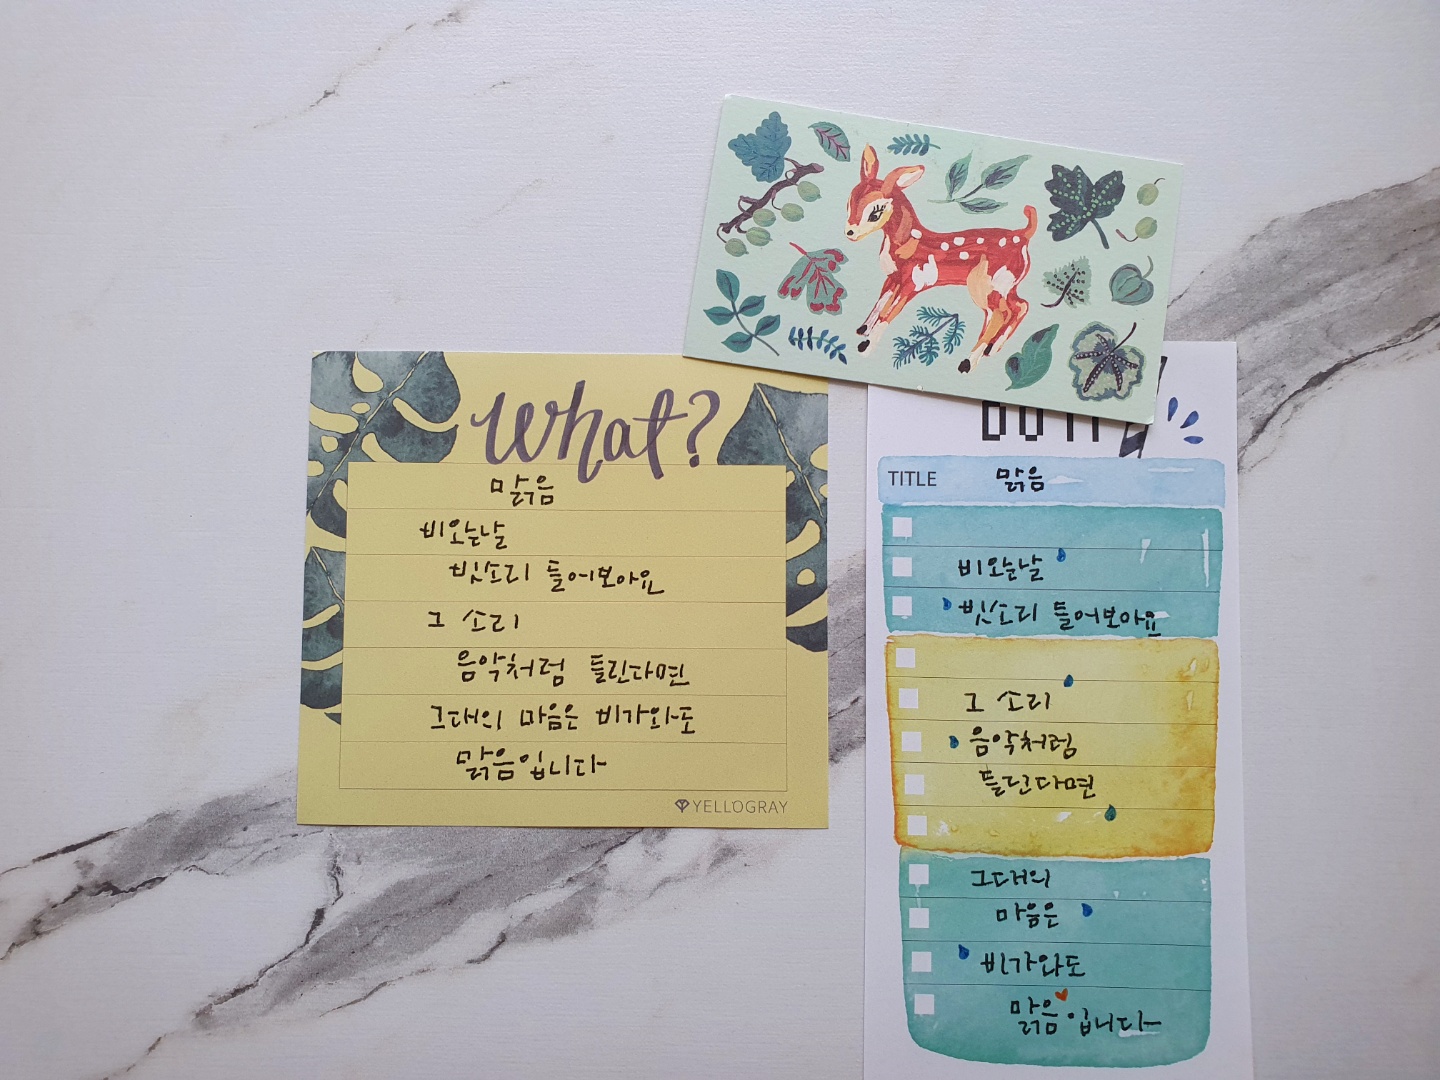 What?
맑음
비오는날
빗소리 들어보아요
그 소리
음악처럼 들린다면
그대의 마음은 비가와도
맑음입니다
YELLOGRAY
TITLE 맑음
비오는날
빗소리 들어보아요
그 소리
음악처럼
들린다면
그대의
마음은
비가와도
맑음입니다